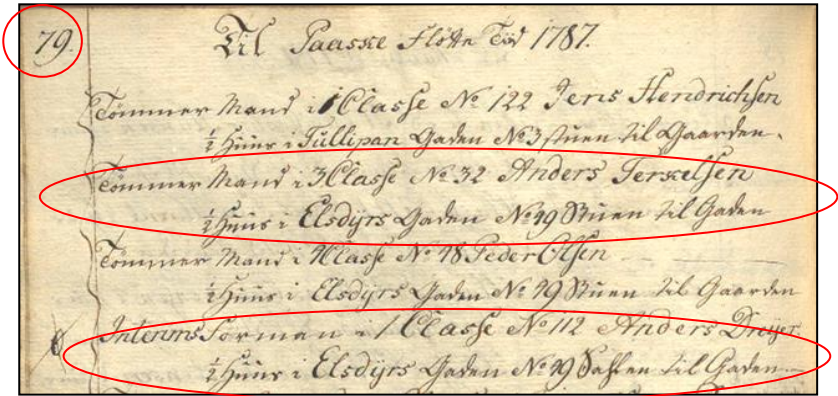 79. Til Paaske Flötte Tiid 1787.
Tömmer Mand i 1 Classe No 122 Jens Hendrichsen
½ Huus i Tullipan Gaden No 3 stuen til Gaarden.
Tömmer Mand i 3 Classe No 32 Anders Terkelsen
½ Huus i Elsdÿrs Gaden No 49 Stuen til Gaden
Tömmer Mand i 4 Classe No 48 Peder Olsen
½ Huus i Elsdÿrs Gaden No 49 Stuen til Gaarden
Interims Forman i 1 Classe No 112 Anders Dreÿer
½ Huus i Elsdÿrs Gaden No 49 Sahlen til Gaden